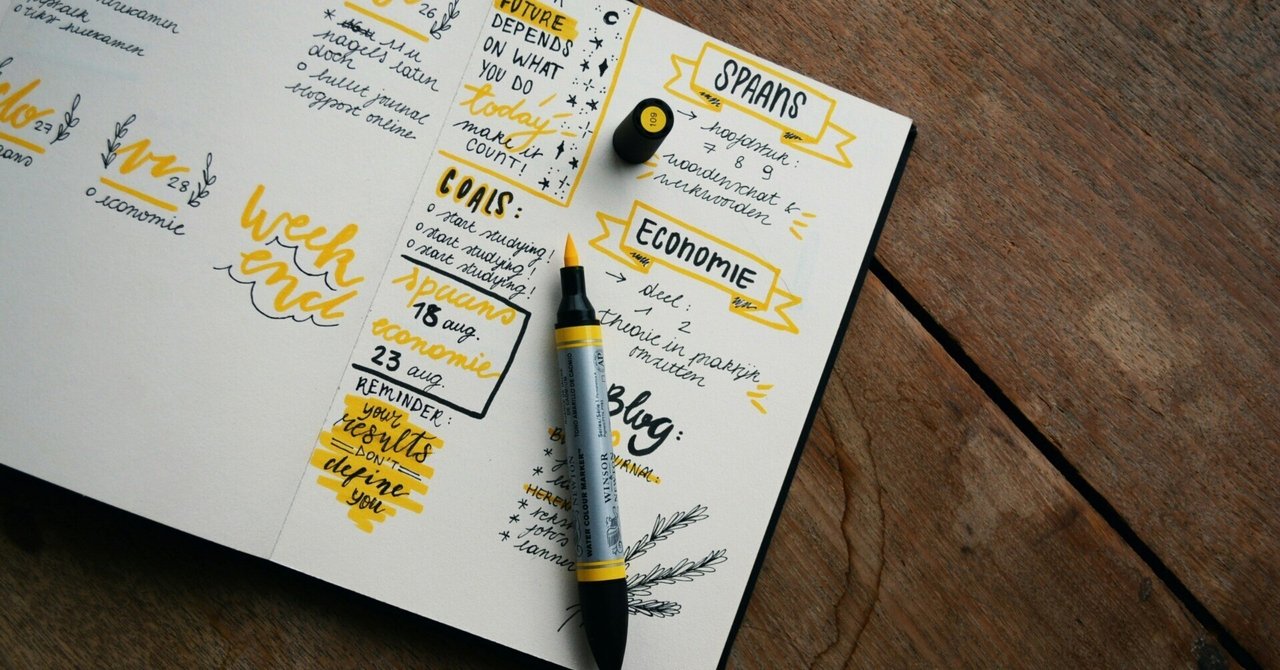 herexamen
26
11u
nagels laten
doen
o bullet journal
blogpost online
27
vr
28
o economie
week
end
FUTURE
DEPENDS
ON WHAT
YOU DO
today
make it
COUNT!
GOALS:
o start studying!
o start studying!
o start studying!
spaans
18 aug.
economie
23 aug.
REMINDER:
your
results
DON'T
define
you
SPAANS
→ hoofdstuk:
7 8 9
woordenschat &
werkwoorden
ECONOMIE
→ deel:
1 2
theorie in praktijk
omzetten
Blog:
109
WATER COLOUR MARKER™
WINSOR